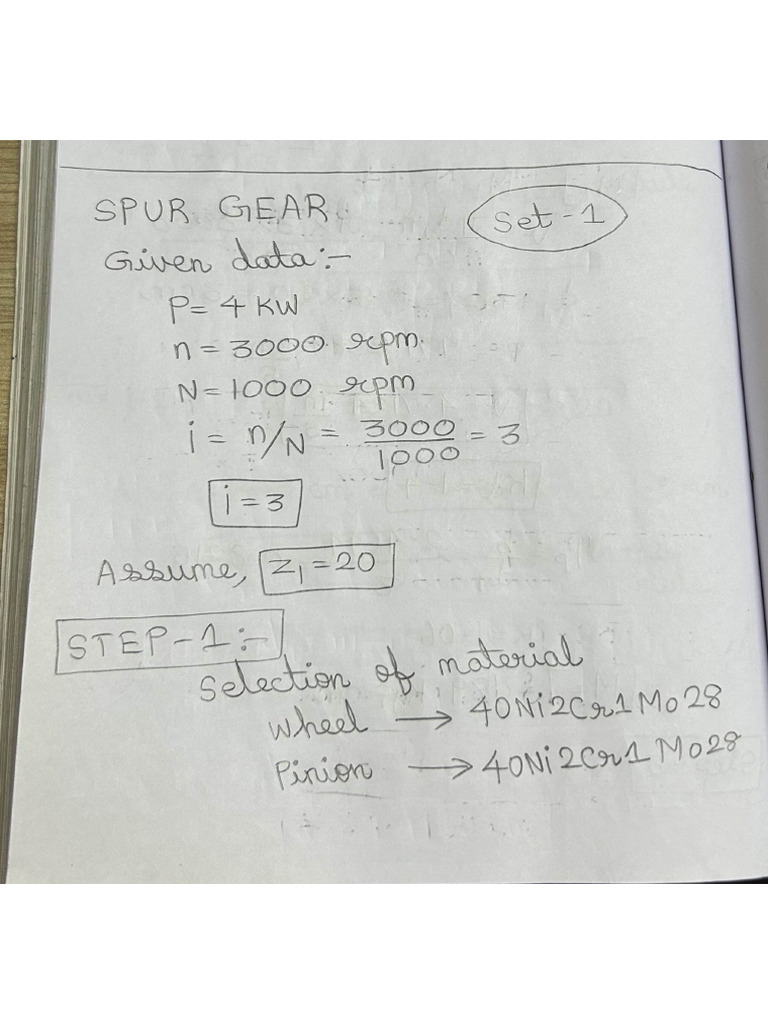 SPUR GEAR
Set-1
Given data:-
P= 4 KW
n = 3000 rpm.
N=1000 rpm
i = n/N = 3000/1000 = 3
i = 3
Assume, Z1 = 20
STEP-1:-
Selection of material
Wheel → 40Ni2Cr1Mo28
Pinion → 40Ni2Cr1Mo28